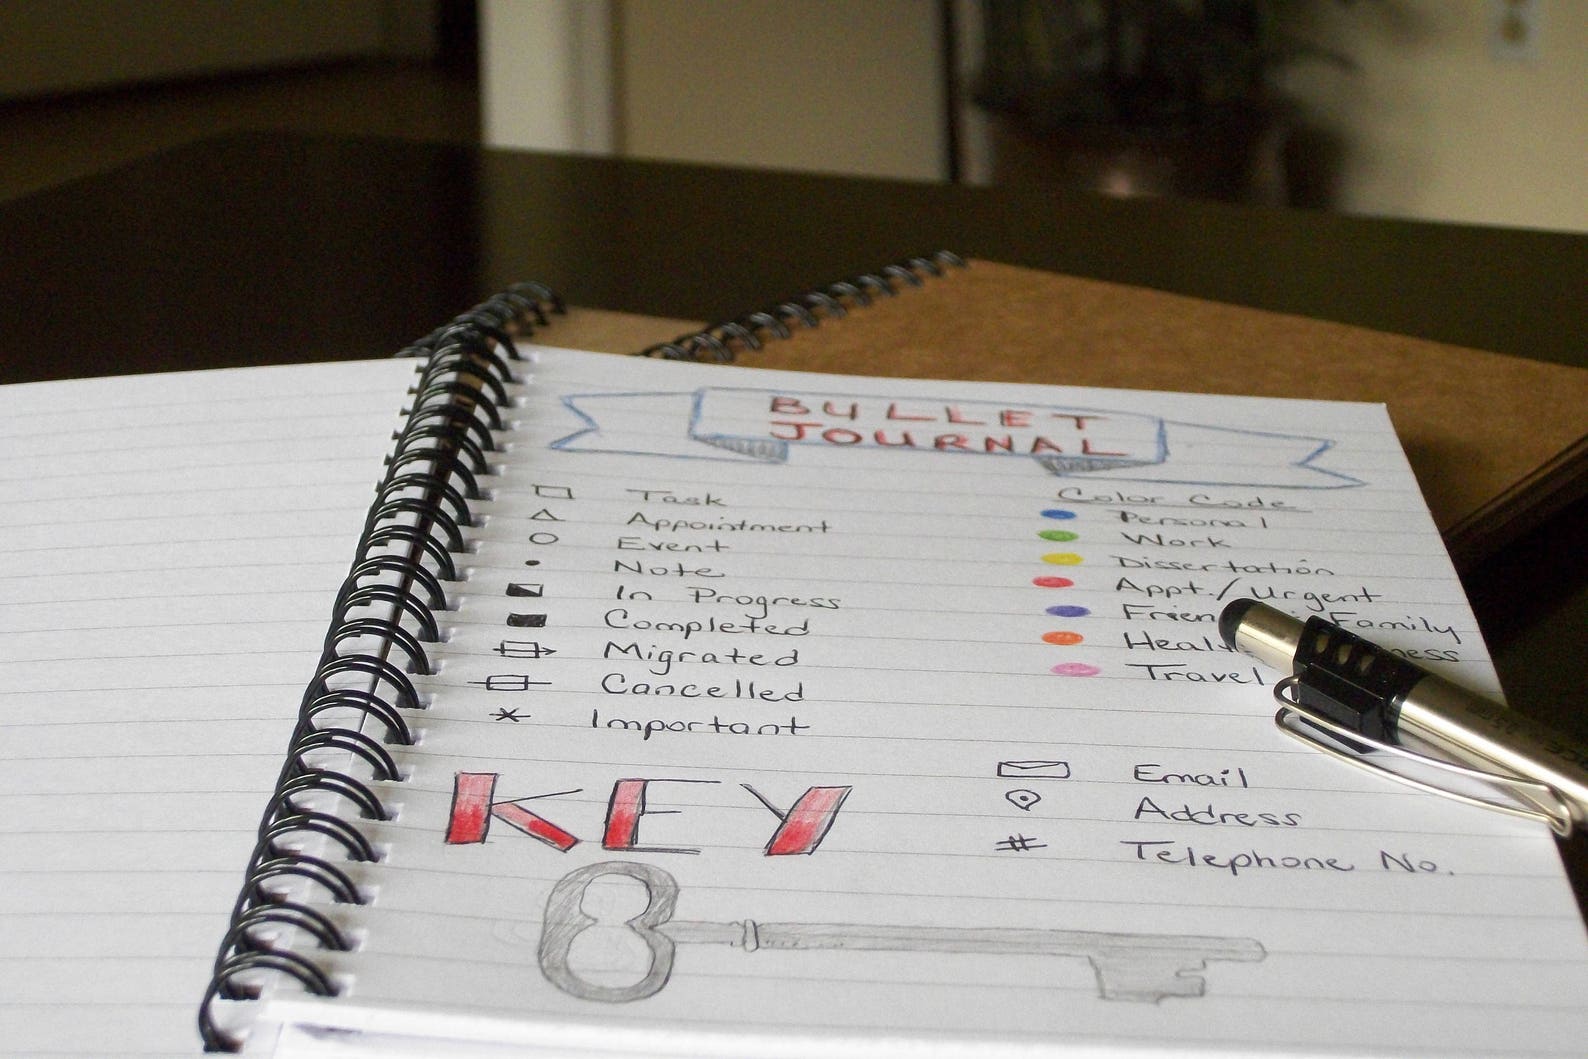 BULLET
JOURNAL
Task
Appointment
Event
Note
In Progress
Completed
Migrated
Cancelled
Important
Color Code
Personal
Work
Dissertation
Appt./Urgent
Family
Travel
KEY
Email
Address
# Telephone No.